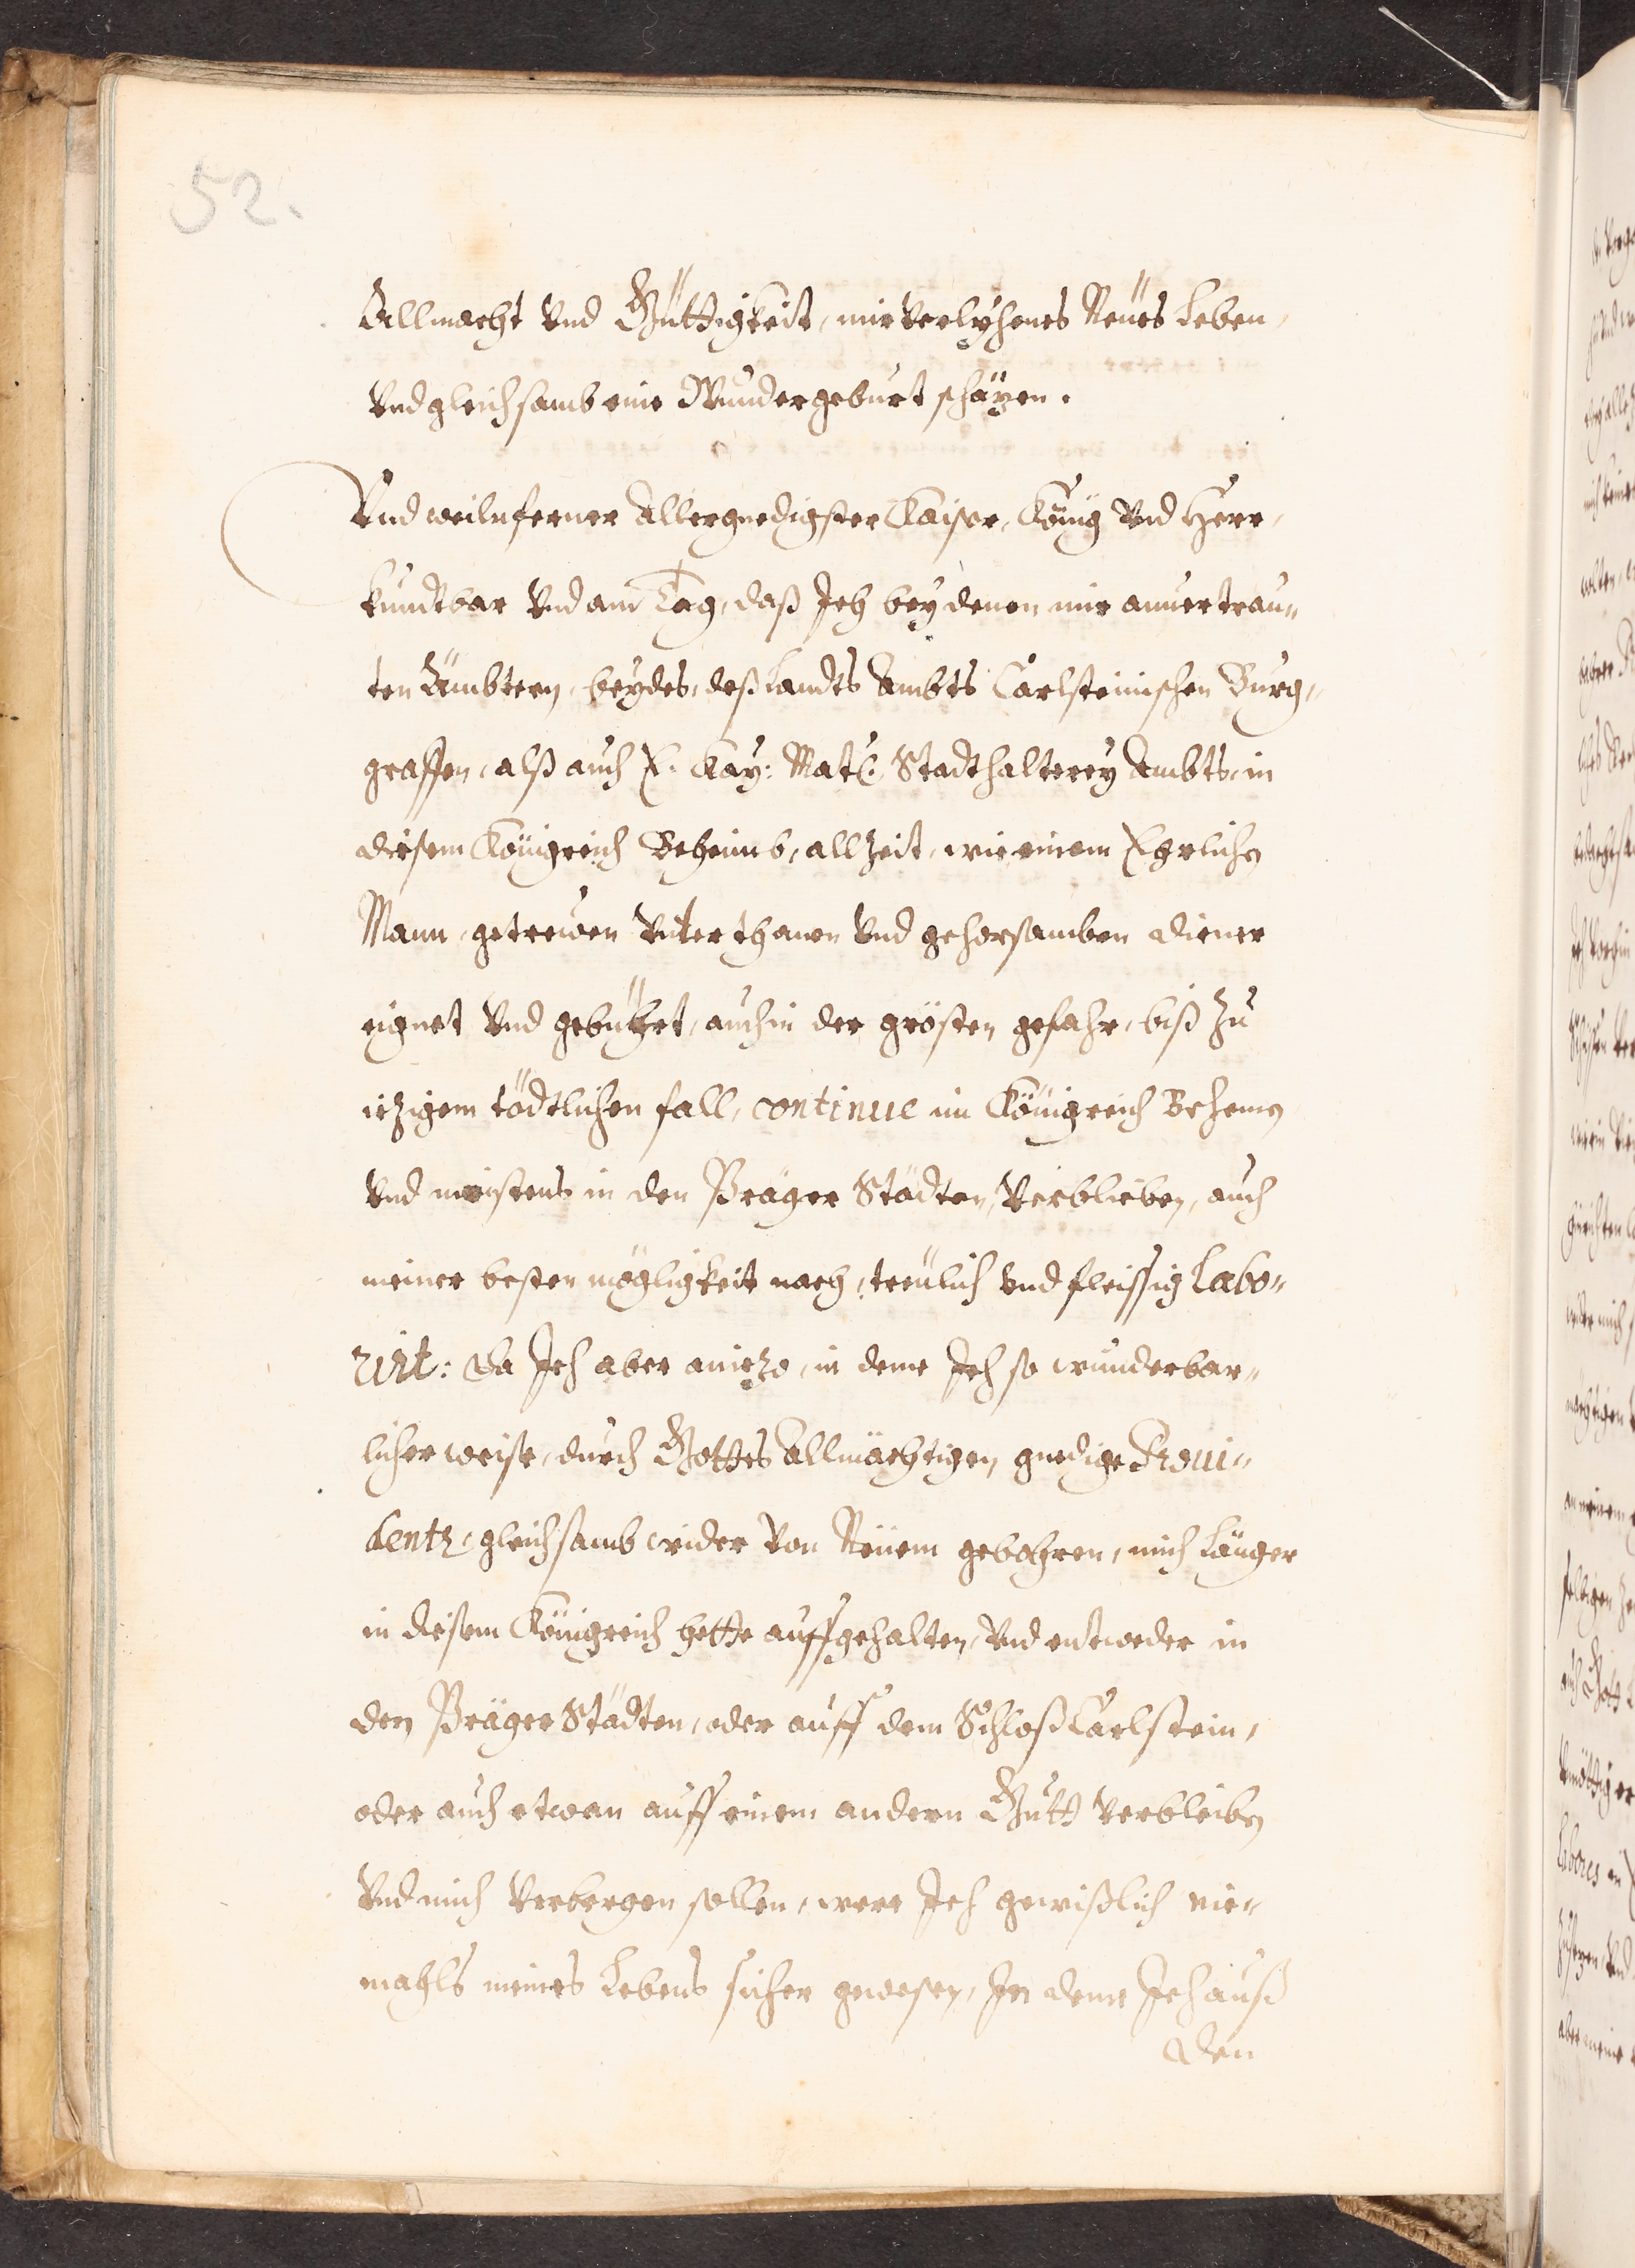 52.
Allmacht vnd Güttigkeit, mir verlyhenes Neües Leben,
vnd gleichsamb eine Wundergeburt schäzen.
Vnd weiln ferner Allergnedigster Kaiser, König vnd Herr,
kundtbar vnd am Tag, daß Ich bey denen mir anuertrau„
ten Ämbtern, beydes, deß Landts Ambts Carlsteinischen Burg„
graffen, alß auch E. Kay: Matt. Stadthalterey Ambts, in
diesem Königreich Beheimb, allzeit, wie einem Ehrlichen
Mann, getrewen Vnterthanen vnd gehorsamben diener
eignet vnd gebühret, auch in der grösten gefahr, biß zu
iezigem tödtlichen fall, continue im Königreich Behemen
vnd meistens in den Prager Städten, verblieben, auch
meiner besten mögligkeit nach, treülich vnd fleissig Labo„
rirt: Da Ich aber aniezo, in deme Ich so wunderbar„
licher weise, durch Gottes Allmächtigen, gnedige Proui„
dentz, gleichsamb wider von Neüem gebohren, mich Länger
in diesem Königreich hette auffgehalten, vnd entweder in
den Prager Städten, oder auff dem Schloß Carlstein,
oder auch etwan auff einem andern Gutt verbleiben
vnd mich verbergen sollen, were Ich gewißlich nie„
mahls meines Lebens sicher gewesen, In deme Ich auß
den